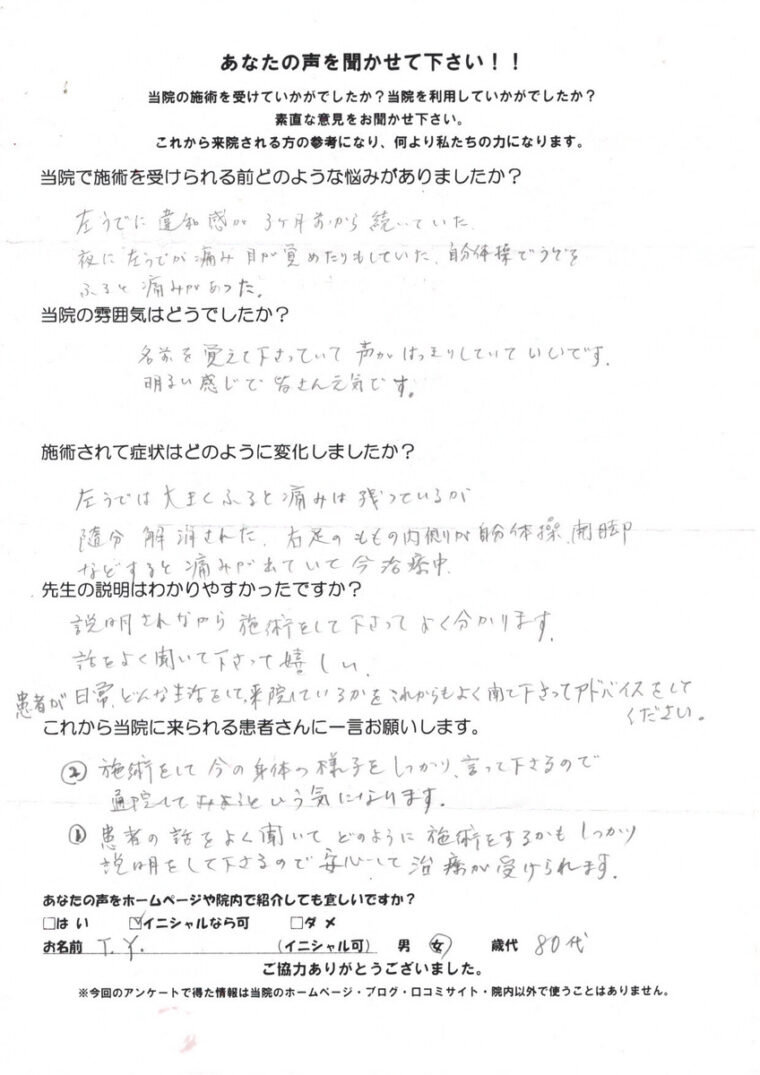 あなたの声を聞かせて下さい！！
当院の施術を受けていかがでしたか？当院を利用していかがでしたか？
素直な意見をお聞かせ下さい。
これから来院される方の参考になり、何より私たちの力になります。
当院で施術を受けられる前どのような悩みがありましたか？
左うでに違和感が3ケ月前から続いていた.
夜に左うでが痛み目が覚めたりもしていた、自分体操でうでを
ふると痛みがあった。
当院の雰囲気はどうでしたか？
名前を覚えて下さっていて声がはっきりしていていいです.
明るい感じで皆さん元気です。
施術されて症状はどのように変化しましたか？
左うでは大きくふると痛みは残っているが
随分解消された、右足のももの内側が自分体操、開脚
などすると痛みが出ていて今治療中.
先生の説明はわかりやすかったですか？
説明されながら施術をして下さってよく分かります.
話をよく聞いて下さって嬉しい.
患者が日常、どんな生活をして、来院しているかをこれからもよく聞て下さってアドバイスをして
ください。
これから当院に来られる患者さんに一言お願いします。
② 施術をして今の身体の様子をしっかり、言って下さるので
通院してみようという気になります.
① 患者の話をよく聞いてどのように施術をするかもしっかり
説明をして下さるので安心して治療が受けられます.
あなたの声をホームページや院内で紹介しても宜しいですか？
□はい ☑イニシャルなら可 □ダメ
お名前 T.Y. （イニシャル可） 男 女 歳代 80代
ご協力ありがとうございました。
※今回のアンケートで得た情報は当院のホームページ・ブログ・口コミサイト・院内以外で使うことはありません。